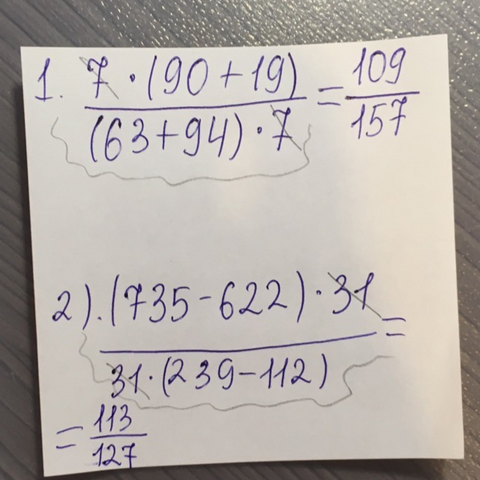 1. 7 · (90 + 19)
(63 + 94) · 7
= 109
157
2). (735 - 622) · 31 =
31 · (239 - 112)
= 113
127